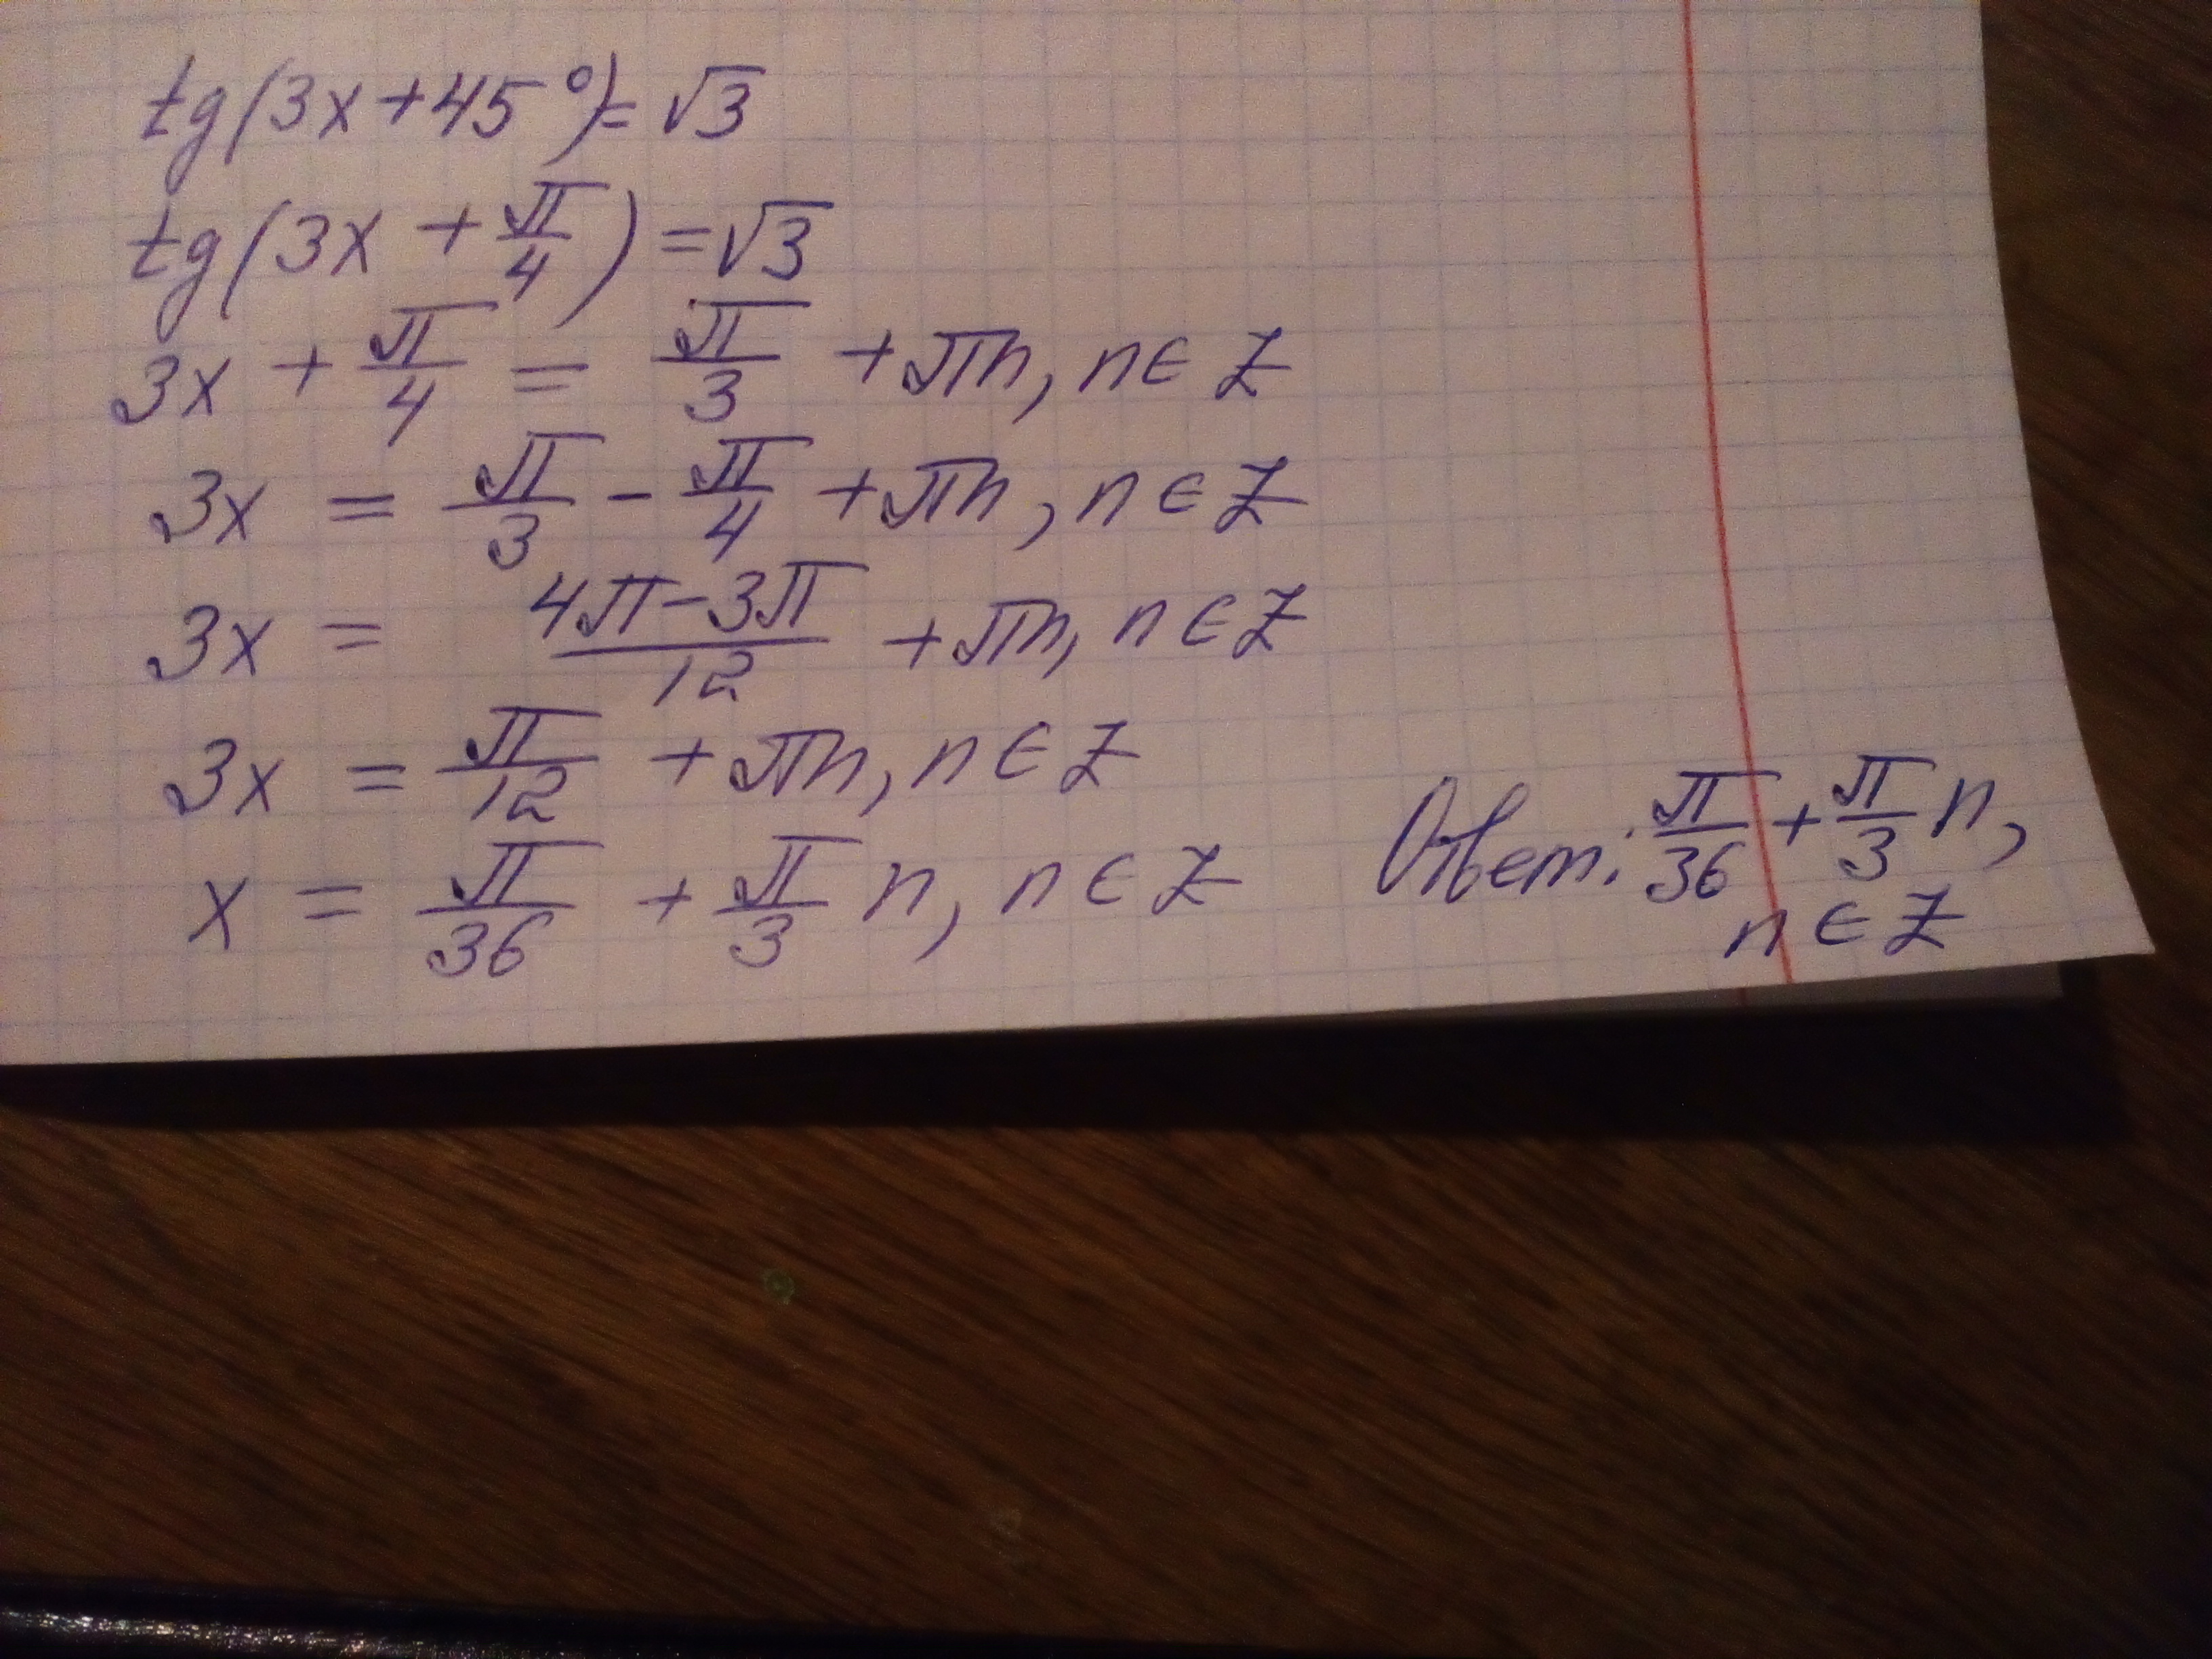 tg(3x+45°)=√3
tg(3x + π/4) = √3
3x + π/4 = π/3 + πn, n ∈ Z
3x = π/3 - π/4 + πn, n ∈ Z
3x = (4π-3π)/12 + πn, n ∈ Z
3x = π/12 + πn, n ∈ Z
x = π/36 + π/3 n, n ∈ Z
Ответ: π/36 + π/3 n,
n ∈ Z